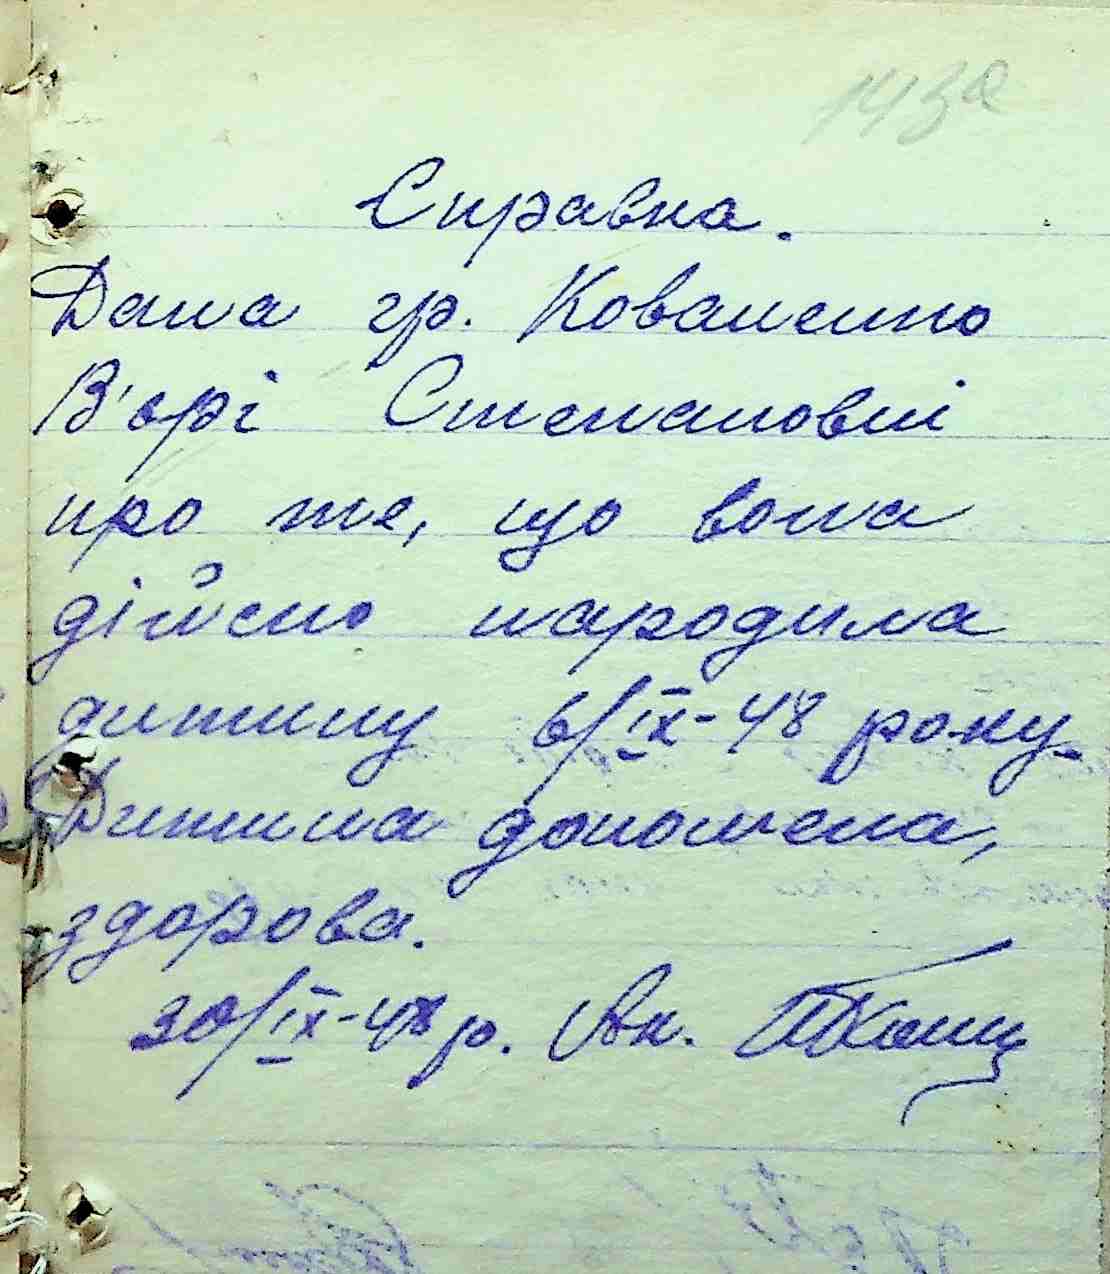 143а
Справка.
Дана гр. Коваленко
В'єрі Степановні
про те, що вона
дійсно народила
дитину 6/IX-48 року.
Дитина доношена,
здорова.
30/IX-48 р. Ак.